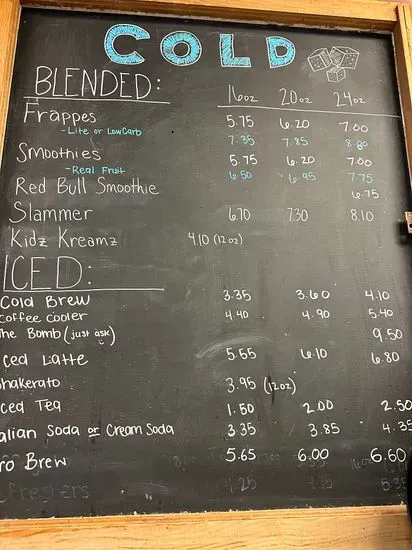 COLD
BLENDED: 16oz 20oz 24oz
Frappes 5.75 6.20 7.00
- Lite or LowCarb 7.35 7.85 8.80
Smoothies 5.75 6.20 7.00
- Real Fruit 6.50 6.95 7.75
Red Bull Smoothie 6.75
Slammer 6.70 7.30 8.10
Kidz Kreamz 4.10 (12oz)
ICED:
Cold Brew 3.35 3.60 4.10
Coffee cooler 4.40 4.90 5.40
The Bomb (just ask) 9.50
ced Latte 5.55 6.10 6.80
hakerato 3.95 (12oz)
ced Tea 1.50 2.00 2.50
alian Soda or Cream Soda 3.35 3.85 4.35
ro Brew 5.65 6.00 6.60
efreshers